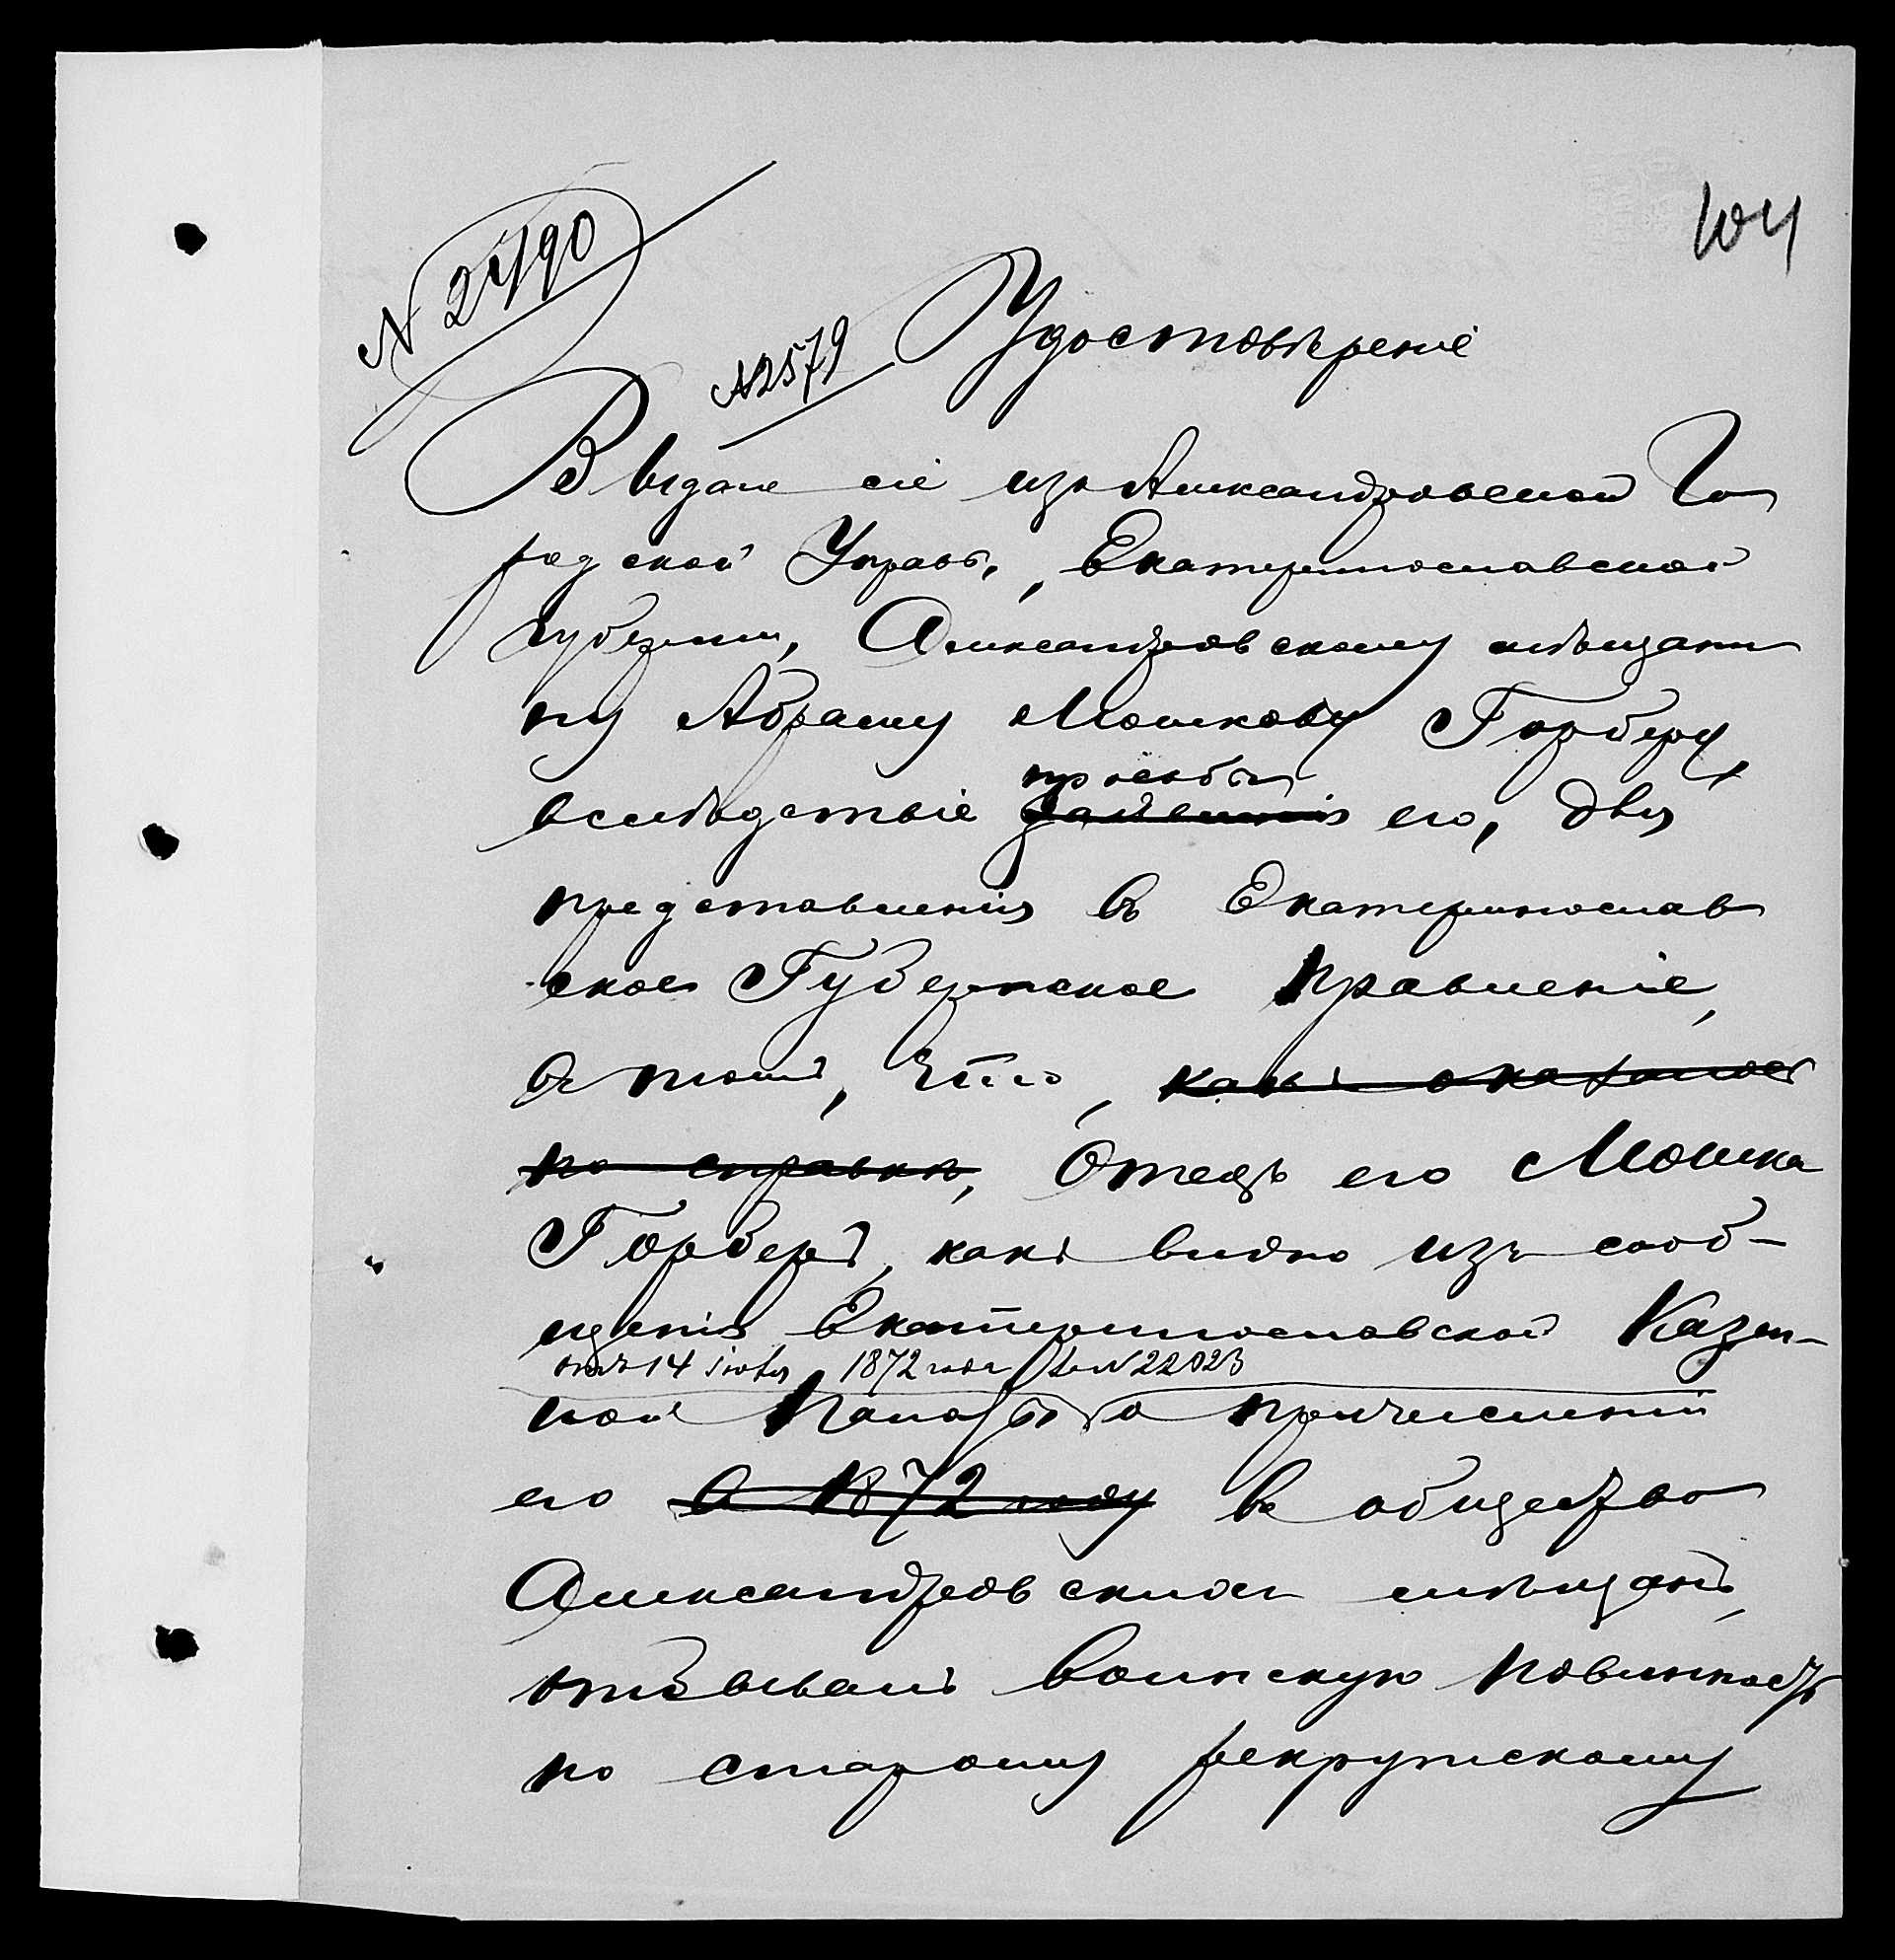 104
№ 2790
№ 2579
Удостовѣреніе
Выдано сіе изъ Александровской Го
родской Управы, Екатеринославской
губерніи, Александровскому мѣщани
ну Абраму Мошкову Горберу
просьбы
вслѣдствіе заявленія его, для
представленія въ Екатеринослав
ское Губернское Правленіе,
въ томъ, что, какъ оказалось
по справкѣ, Отецъ его Мошка
Горберъ, какъ видно изъ сооб-
щенія Екатеринославской Казен-
отъ 14 1872 года за № 22023
ной Палаты о причисленіи
его въ 1872 году въ общество
Александровскихъ мѣщанъ,
отбывалъ воинскую повинность
по старому рекрутскому